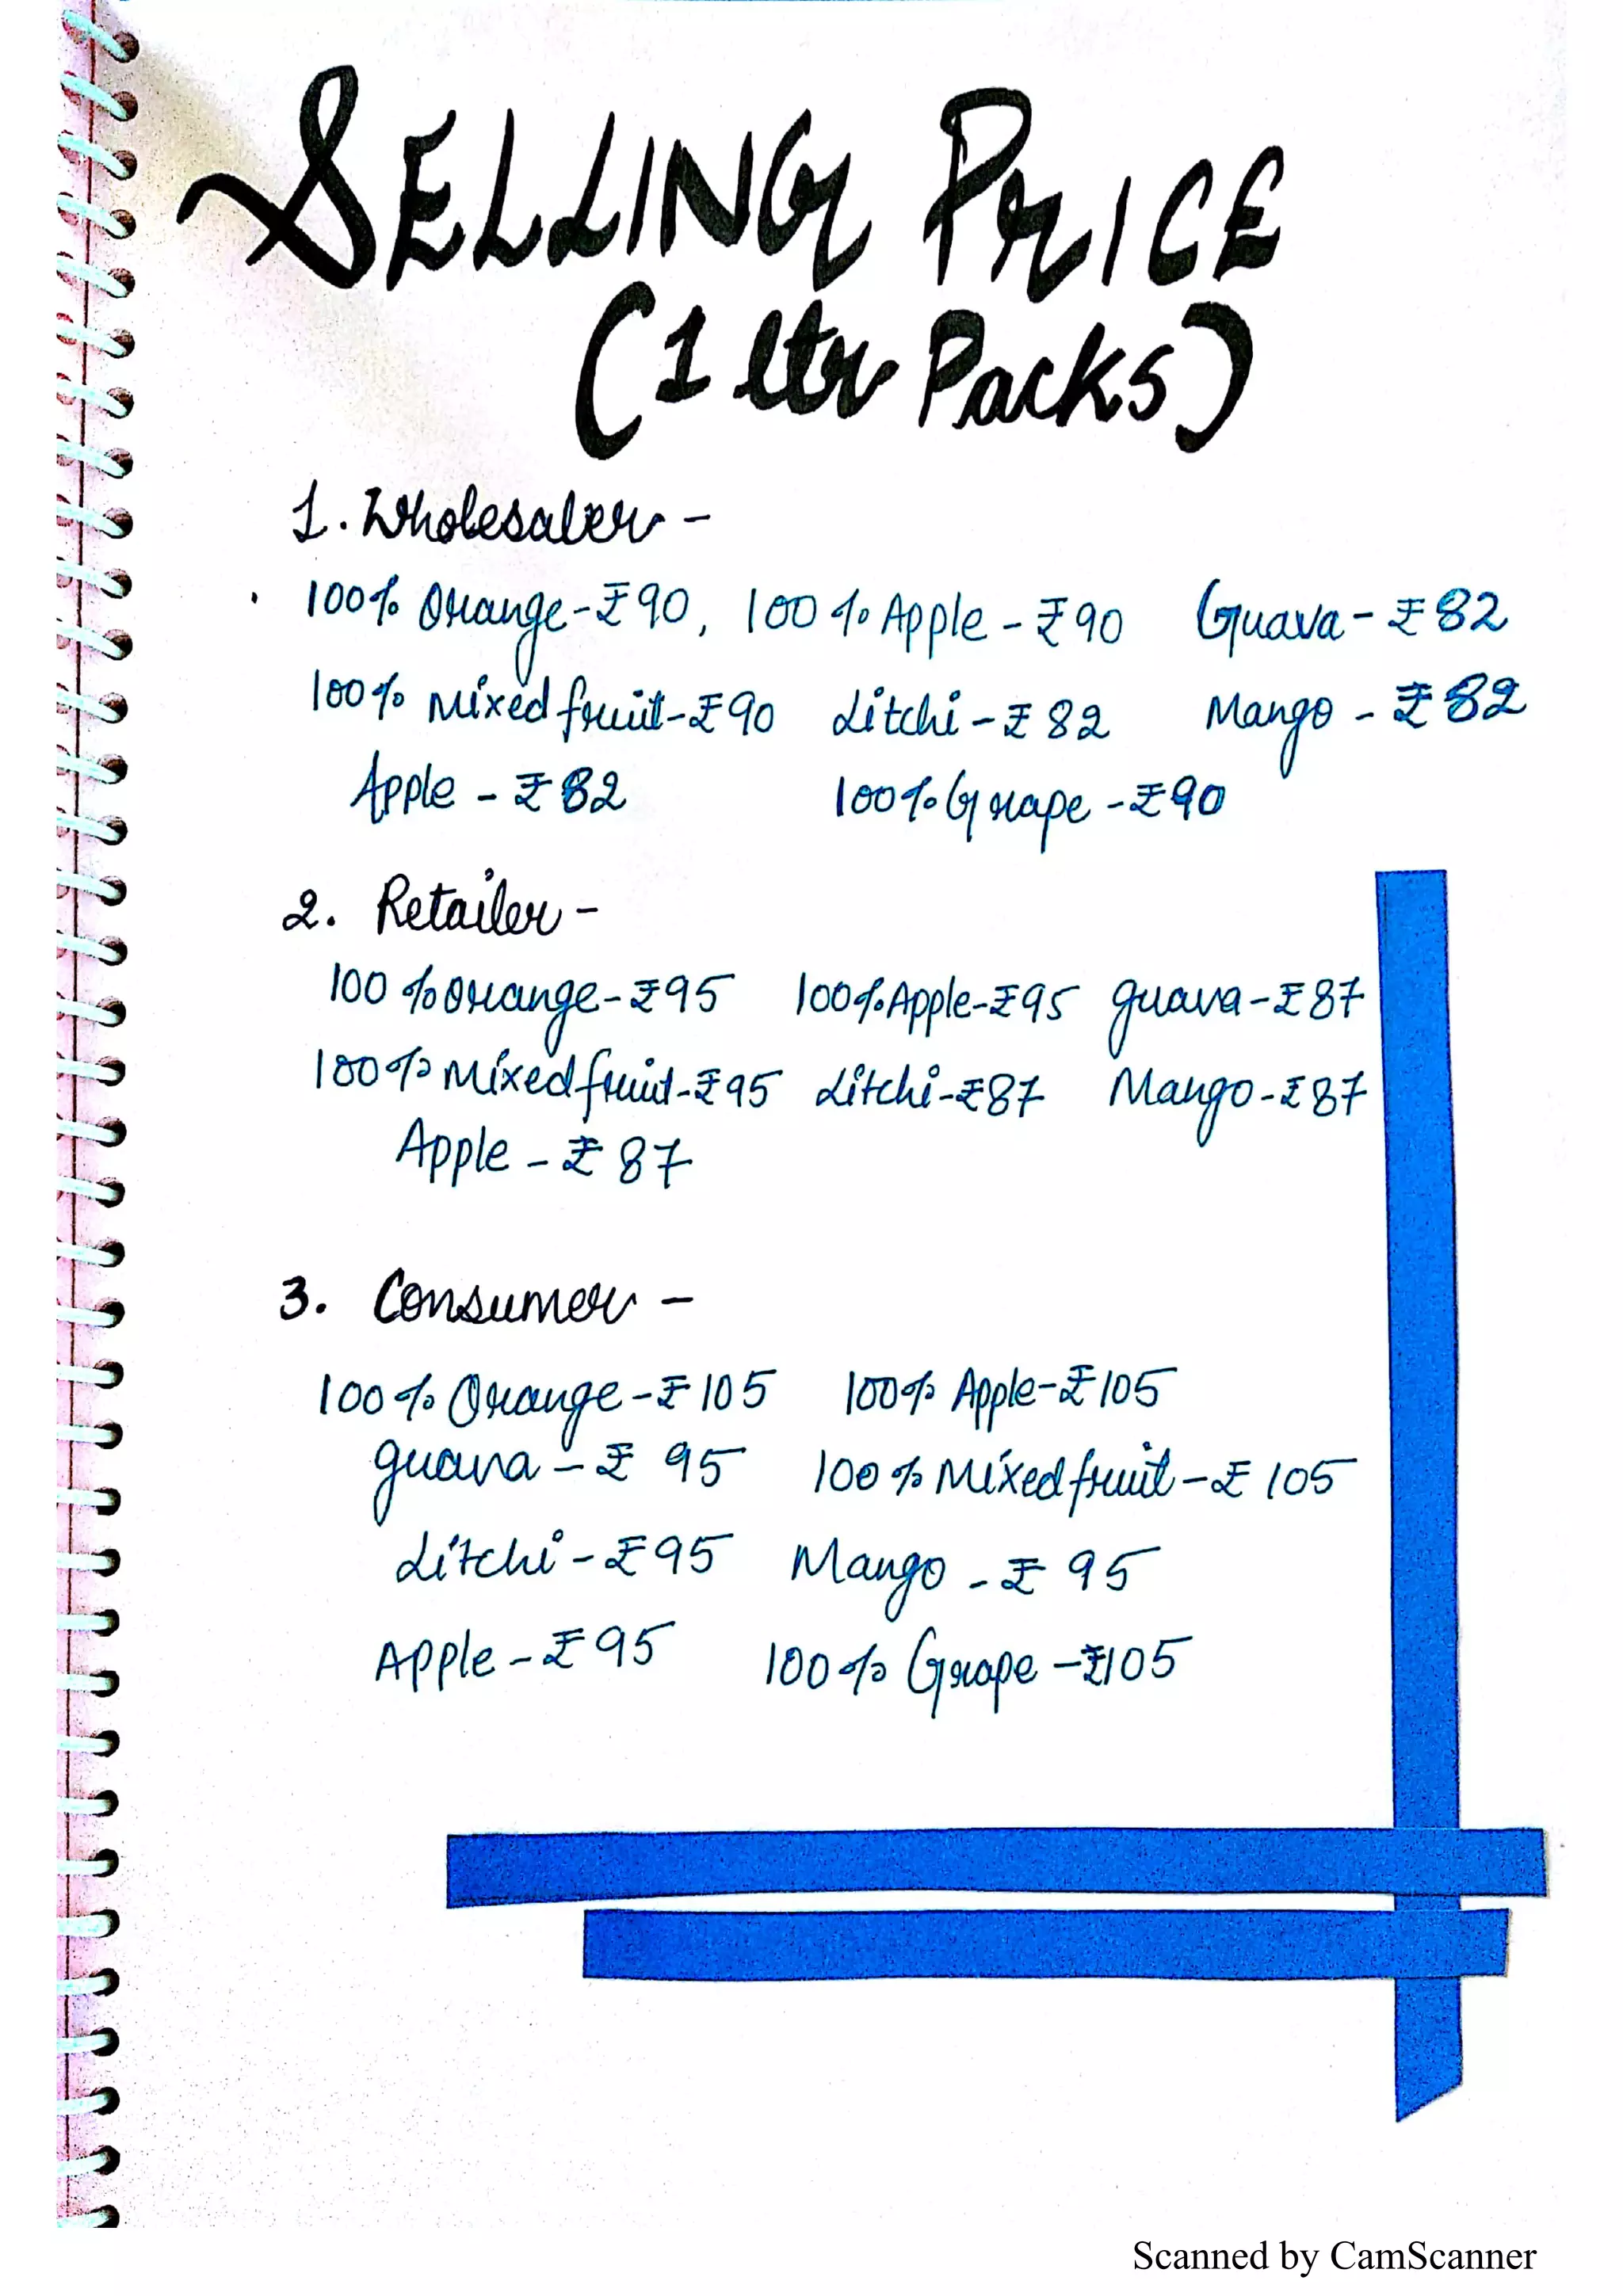 SELLING PRICE
(1 ltr Packs)
1. Wholesaler -
100% Orange - ₹90, 100% Apple - ₹90 Guava - ₹82
100% Mixed fruit - ₹90 Litchi - ₹82 Mango - ₹82
Apple - ₹82 100% Grape - ₹90
2. Retailer -
100% Orange - ₹95 100% Apple - ₹95 guava - ₹87
100% Mixed fruit - ₹95 Litchi - ₹87 Mango - ₹87
Apple - ₹87
3. Consumer -
100% Orange - ₹105 100% Apple - ₹105
guava - ₹95 100% Mixed fruit - ₹105
Litchi - ₹95 Mango - ₹95
Apple - ₹95 100% Grape - ₹105
Scanned by CamScanner